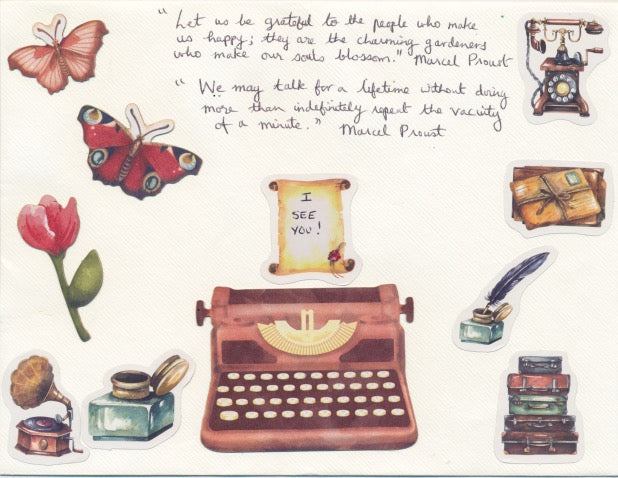 "Let us be grateful to the people who make
us happy; they are the charming gardeners
who make our souls blossom." Marcel Proust
"We may talk for a lifetime without doing
more than indefinitely repeat the vacuity
of a minute." Marcel Proust
I
SEE
YOU!